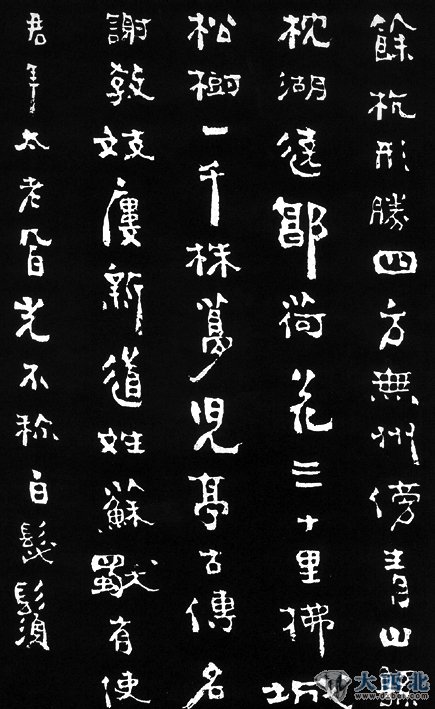 餘杭形勝四方無州傍青山縣
枕湖遶郭荷花三十里拂城
松樹一千株夢兒亭古傳名
謝教妓樓新道姓蘇獨有使
君年太老風光不称白髭鬚
大西北